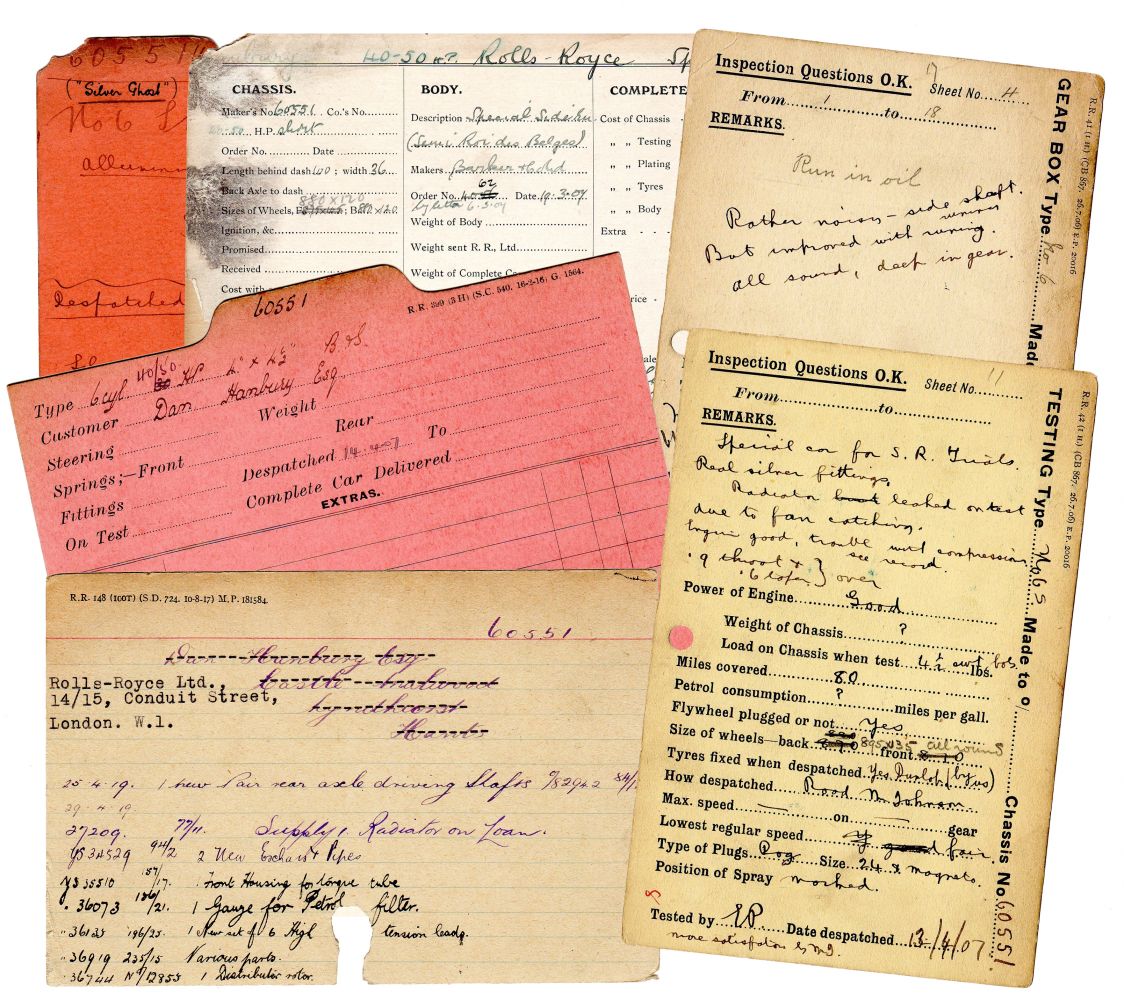 60551
("Silver Ghost")
No 6
Despatched
40-50 H.P. Rolls-Royce
CHASSIS.
Maker's No 60551 Co.'s No
H.P. short
Order No. Date
Length behind dash 40; width 36
Back Axle to dash
Sizes of Wheels, F
Ignition, &c.
Promised
Received
Cost with
BODY.
Description Special
(Semi Roi des Belges)
Makers. Barker & Co Ltd
Order No. 62 Date 19.3.07
by letter 6.3.07
Weight of Body
Weight sent R. R., Ltd.
Weight of Complete
COMPLETE
Cost of Chassis
„ „ Testing
„ „ Plating
„ „ Tyres
„ „ Body
Extra
Inspection Questions O.K. Sheet No. 4
17
From 1 to 18
REMARKS.
Run in oil
Rather noisy - side shaft.
But improved with running.
all sound, deep in gear.
GEAR BOX Type No 6 Made
R.R. 41 (1 H.) (CB 867. 26.7.06) E.P. 20016
60551
R.R. 399 (3 H) (S.C. 540. 16-3-16, G. 1564.
Type 6cyl 40/50 HP 4" x 4½"
Customer Dan Hanbury Esq
Steering Weight
Springs;—Front Rear
Fittings Despatched 14.4.07 To
On Test Complete Car Delivered
EXTRAS.
Inspection Questions O.K. Sheet No. 11
From to
REMARKS.
Special car for S. R. Trials.
Real silver fittings
Radiator leaked on test
due to fan catching.
Engine good, trouble with compression
see record.
.9 throat &
.6 taper } over
Power of Engine Good
Weight of Chassis ?
Load on Chassis when test 4½ cwt bob. lbs.
Miles covered 80
Petrol consumption ? miles per gall.
Flywheel plugged or not yes,
Size of wheels—back 895x135 all round front
Tyres fixed when despatched Yes Dunlop (by us)
How despatched Road
Max. speed — on — gear
Lowest regular speed fair
Type of Plugs Pog Size 24 & magneto.
Position of Spray marked.
Tested by EP. Date despatched 13/4/07
TESTING Type No 6 S Made to o/ Chassis No 60551
R.R. 42 (1 H.) (CB 867. 26.7.06) E.P. 20016
R.R. 148 (100T) (S.D. 724. 10-8-17) M.P. 181584.
60551
Dan Hanbury Esq
Rolls-Royce Ltd., Castle Malwood
14/15, Conduit Street, Lyndhurst
London. W.1. Hants
25-4-19. 1 new Pair rear axle driving Shafts
29-4-19
27209. 77/11. Supply 1. Radiator on Loan.
94/2 2 New Exhaust Pipes
35510 157/17. 1 Front Housing for torque tube
36073 186/21. 1 Gauge for Petrol filter.
196/25. 1 New set of 6 High tension leads.
36919 235/15 Various parts.
36744 1 Distributor rotor.